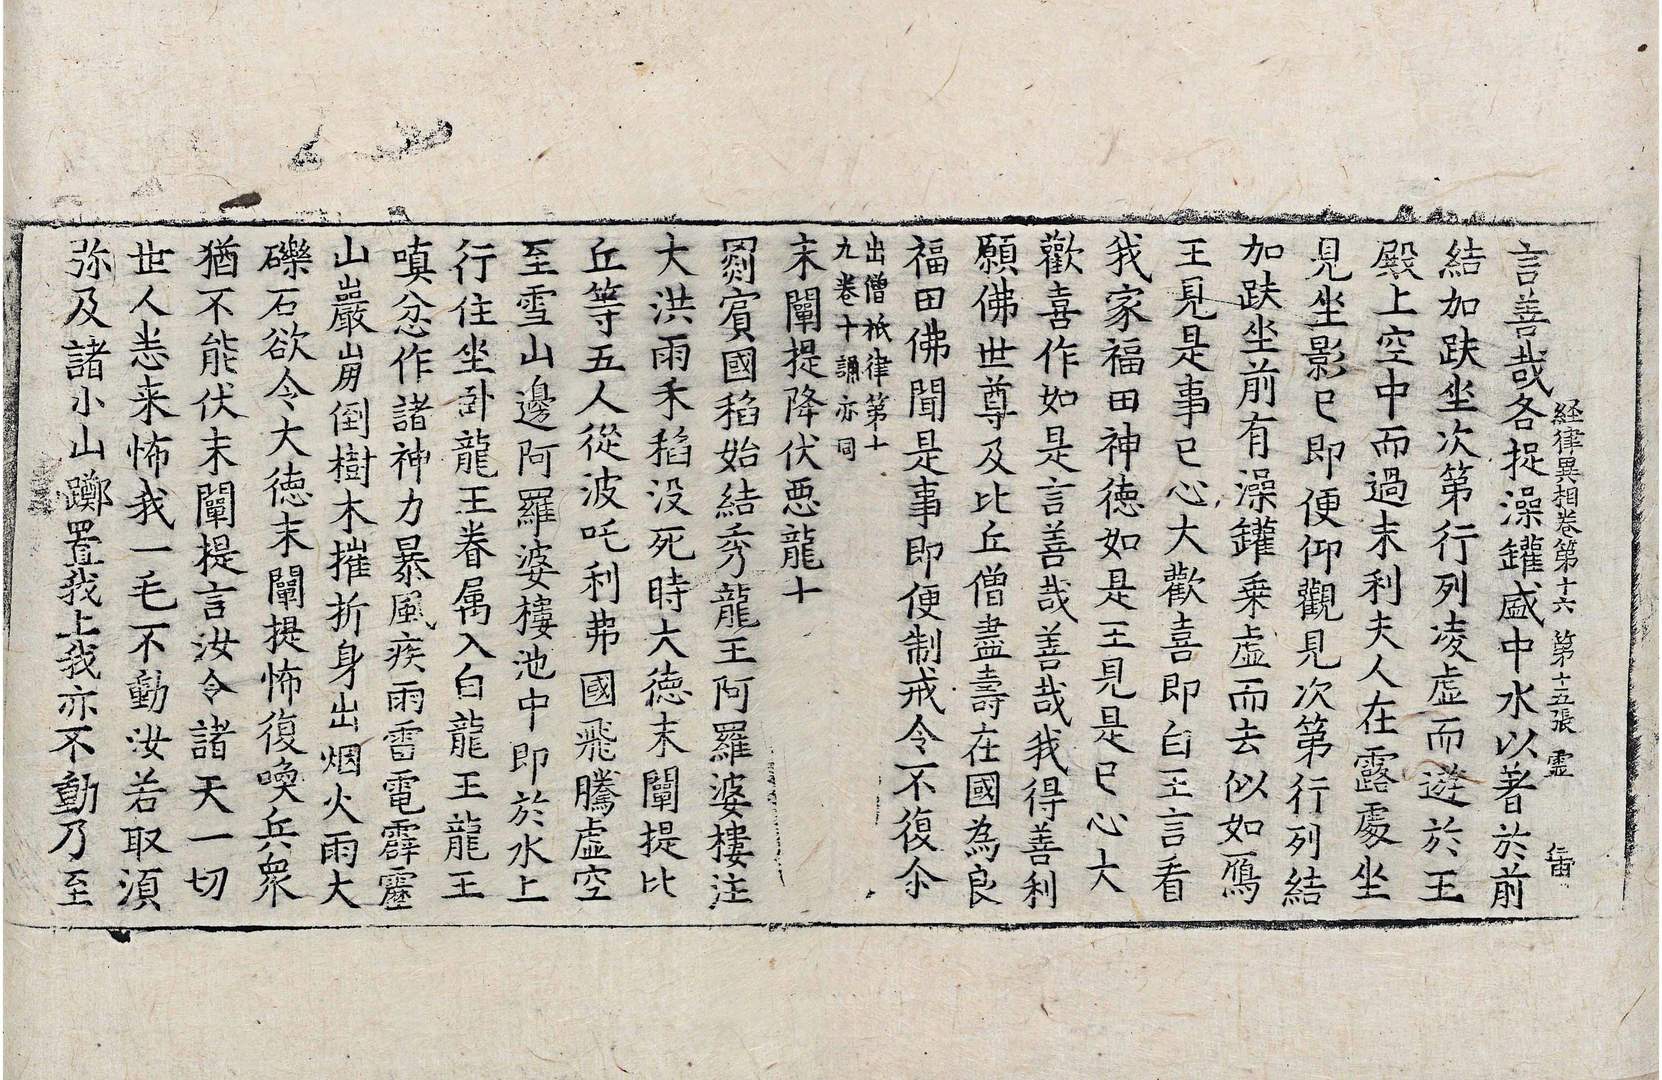 経律異相卷第十六 第十五張 靈 宙
言善哉各捉澡罐盛中水以著於前
結加趺坐次第行列凌虛而遊於王
殿上空中而過末利夫人在露處坐
見坐影已即便仰觀見次第行列結
加趺坐前有澡罐乗虛而去似如鴈
王見是事已心大歡喜即白王言看
我家福田神德如是王見是已心大
歡喜作如是言善哉善哉我得善利
願佛世尊及比丘僧盡壽在國為良
福田佛聞是事即便制戒令不復尒
出僧祇律第十
九卷十誦亦同
末闡提降伏惡龍十
罽賓國稻始結秀龍王阿羅婆樓注
大洪雨禾稻没死時大徳末闡提比
丘等五人從波吒利弗國飛騰虛空
至雪山邊阿羅婆樓池中即於水上
行住坐卧龍王眷属入白龍王龍王
嗔忿作諸神力暴風疾雨雷電霹靂
山巖崩倒樹木摧折身出烟火雨大
礫石欲令大徳末闡提怖復喚兵衆
猶不能伏末闡提言汝令諸天一切
世人恙来怖我一毛不動汝若取湏
弥及諸小山擲置我上我亦不動乃至